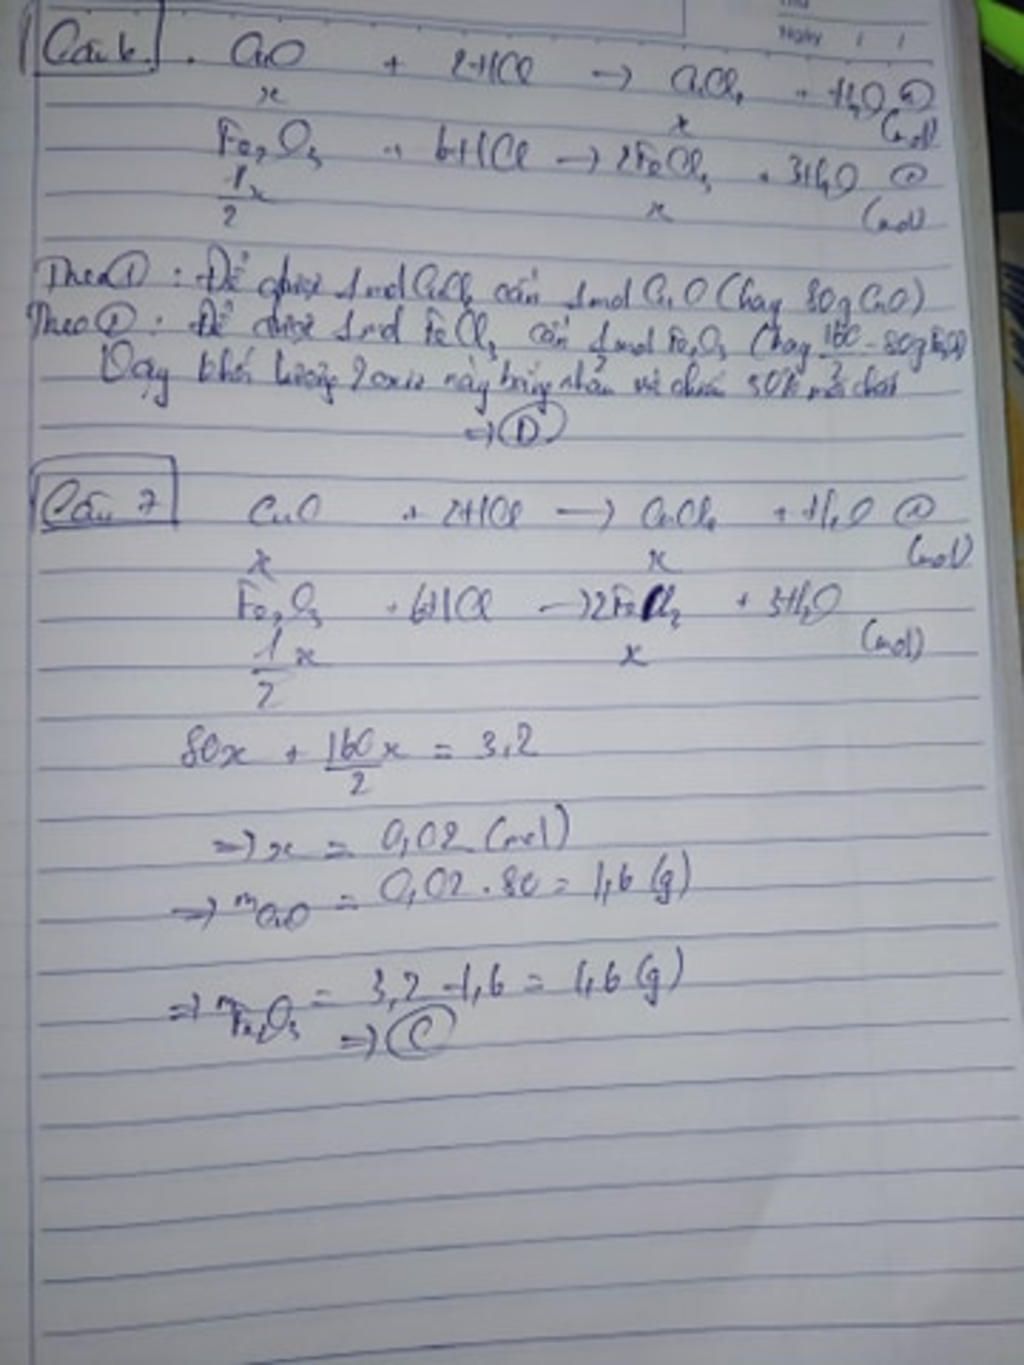 Thứ
Ngày / /
Câu 6. CuO + 2HCl → CuCl₂ + H₂O ①
x x (mol)
Fe₂O₃ + 6HCl → 2FeCl₃ + 3H₂O ②
1/2 x x (mol)
Theo ①: Để được 1 mol CuCl₂ cần 1 mol CuO (hay 80g CuO)
Theo ②: Để được 1 mol FeCl₃ cần 1 mol Fe₂O₃ (hay 160/2 = 80g Fe₂O₃)
Vậy khối lượng 2 oxit này bằng nhau và chiếm 50% mỗi chất
⇒ Ⓓ
Câu 7 CuO + 2HCl → CuCl₂ + H₂O ①
x x (mol)
Fe₂O₃ + 6HCl → 2FeCl₃ + 3H₂O
1/2 x x (mol)
80x + 160/2 x = 3,2
⇒ x = 0,02 (mol)
⇒ mCuO = 0,02 . 80 = 1,6 (g)
⇒ mFe₂O₃ = 3,2 - 1,6 = 1,6 (g)
⇒ Ⓒ